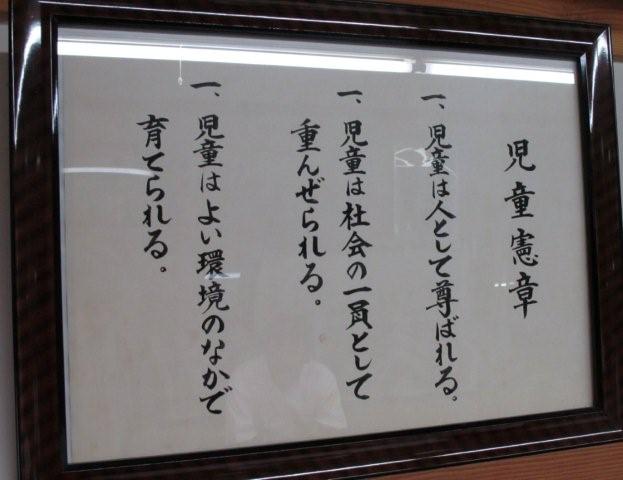 児童憲章
一、児童は人として尊ばれる。
一、児童は社会の一員として
重んぜられる。
一、児童はよい環境のなかで
育てられる。